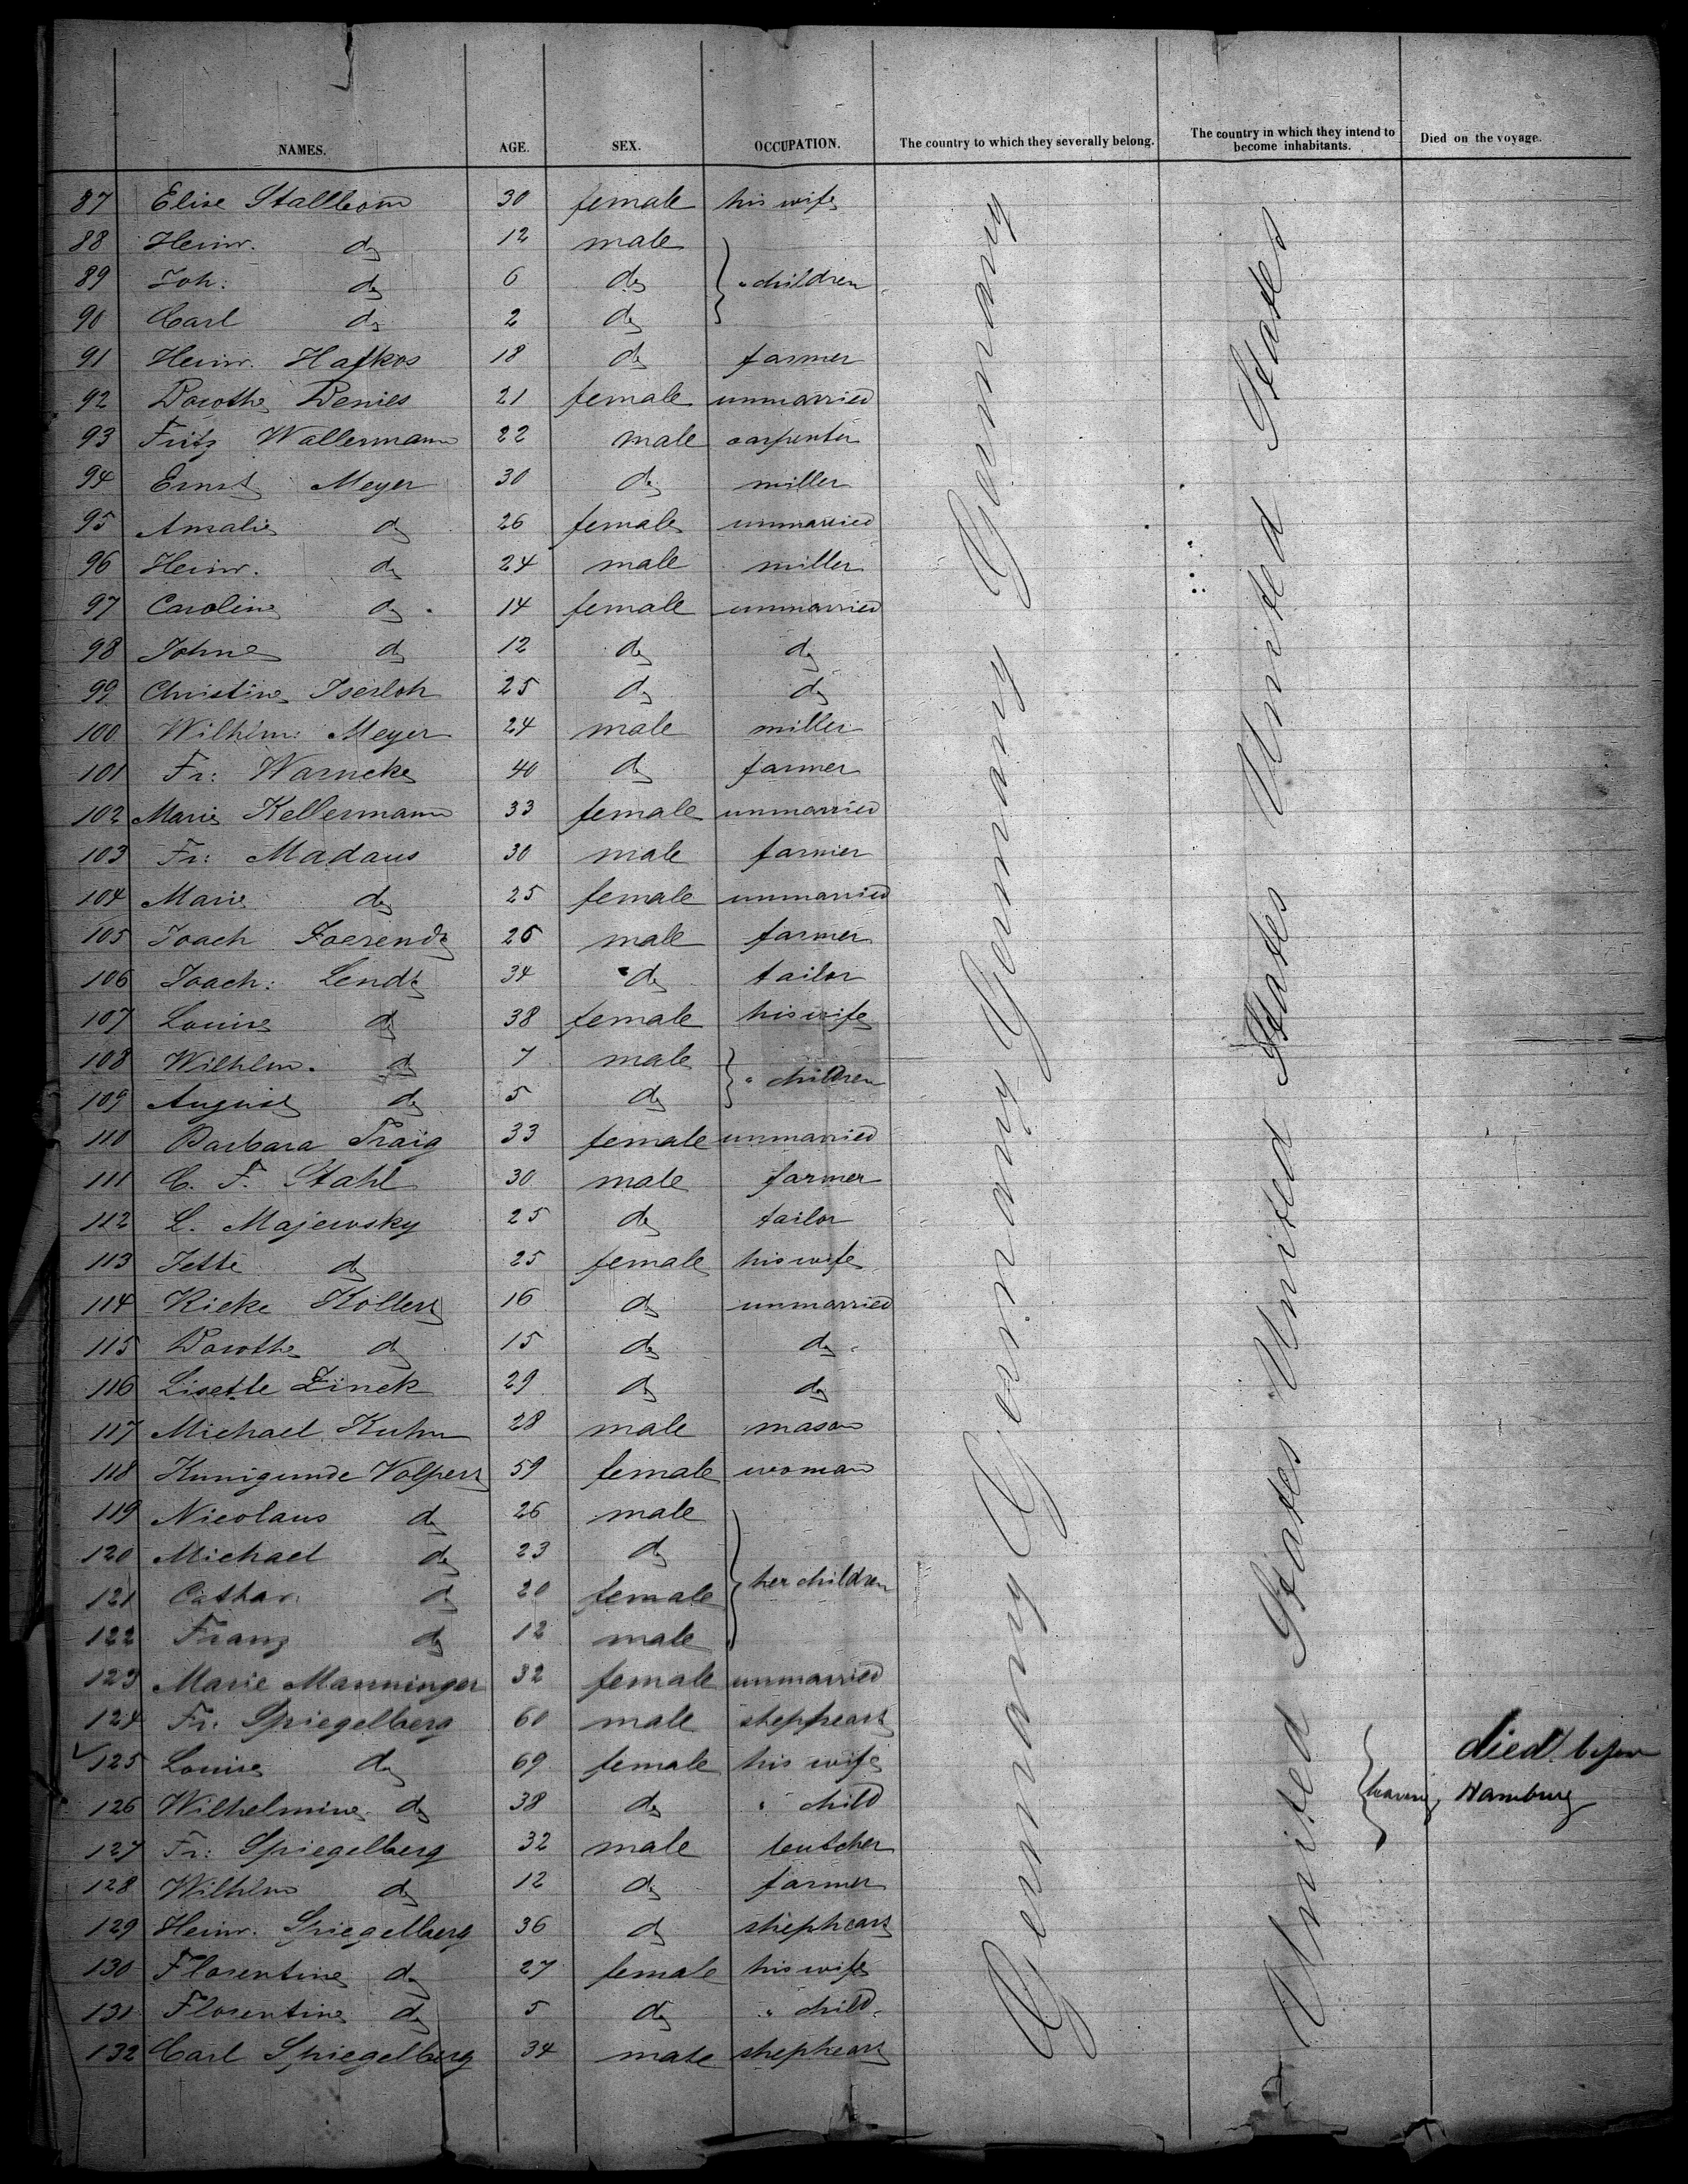 NAMES. AGE. SEX. OCCUPATION. The country to which they severally belong. The country in which they intend to become inhabitants. Died on the voyage.
87 Elise Stallbom 30 female his wife
88 Heinr. do 12 male
89 Joh: do 6 do " children
90 Carl do 2 do
91 Heinr. Hafkos 18 do farmer
92 Dorothe Denies 21 female unmarried
93 Fritz Wallermann 22 male carpenter
94 Ernst Meyer 30 do miller
95 Amalie do 26 female unmarried
96 Heinr. do 24 male miller
97 Caroline do 14 female unmarried
98 Johne do 12 do do
99 Christine Iserloh 25 do do
100 Wilhlm: Meyer 24 male miller
101 Fr: Warneke 40 do farmer
102 Marie Kellermann 33 female unmarried
103 Fr: Madaus 30 male farmer
104 Marie do 25 female unmarried
105 Joach 26 male farmer
106 Joach: Lendt 34 do tailor
107 Louise do 38 female his wife
108 Wilhlm. do 7 male
109 August do 5 do " children
110 Barbara Traig 33 female unmarried
111 C. F. Stahl 30 male farmer
112 L. Majewsky 25 do tailor
113 Jette do 25 female his wife
114 Rieke Kollert 16 do unmarried
115 Dorothe do 15 do do
116 Lisette Zinck 29 do do
117 Michael Kuhn 28 male mason
118 Kunigunde Volpert 59 female woman
119 Nicolaus do 26 male
120 Michael do 23 do
121 Cathar: do 20 female her children
122 Franz do 12 male
123 Marie Manninger 32 female unmarried
124 Fr: Spiegelberg 60 male shepheart
125 Louise do 69 female his wife died before
126 Wilhelmine do 38 do " child leaving Hamburg
127 Fr: Spiegelberg 32 male butcher
128 Wilhlm do 12 do farmer
129 Heinr. Spiegelberg 36 do shepheart
130 Florentine do 27 female his wife
131 Florentine do 5 do " child
132 Carl Spiegelberg 34 male shepheart
Germany Germany Germany Germany
United States United States United States